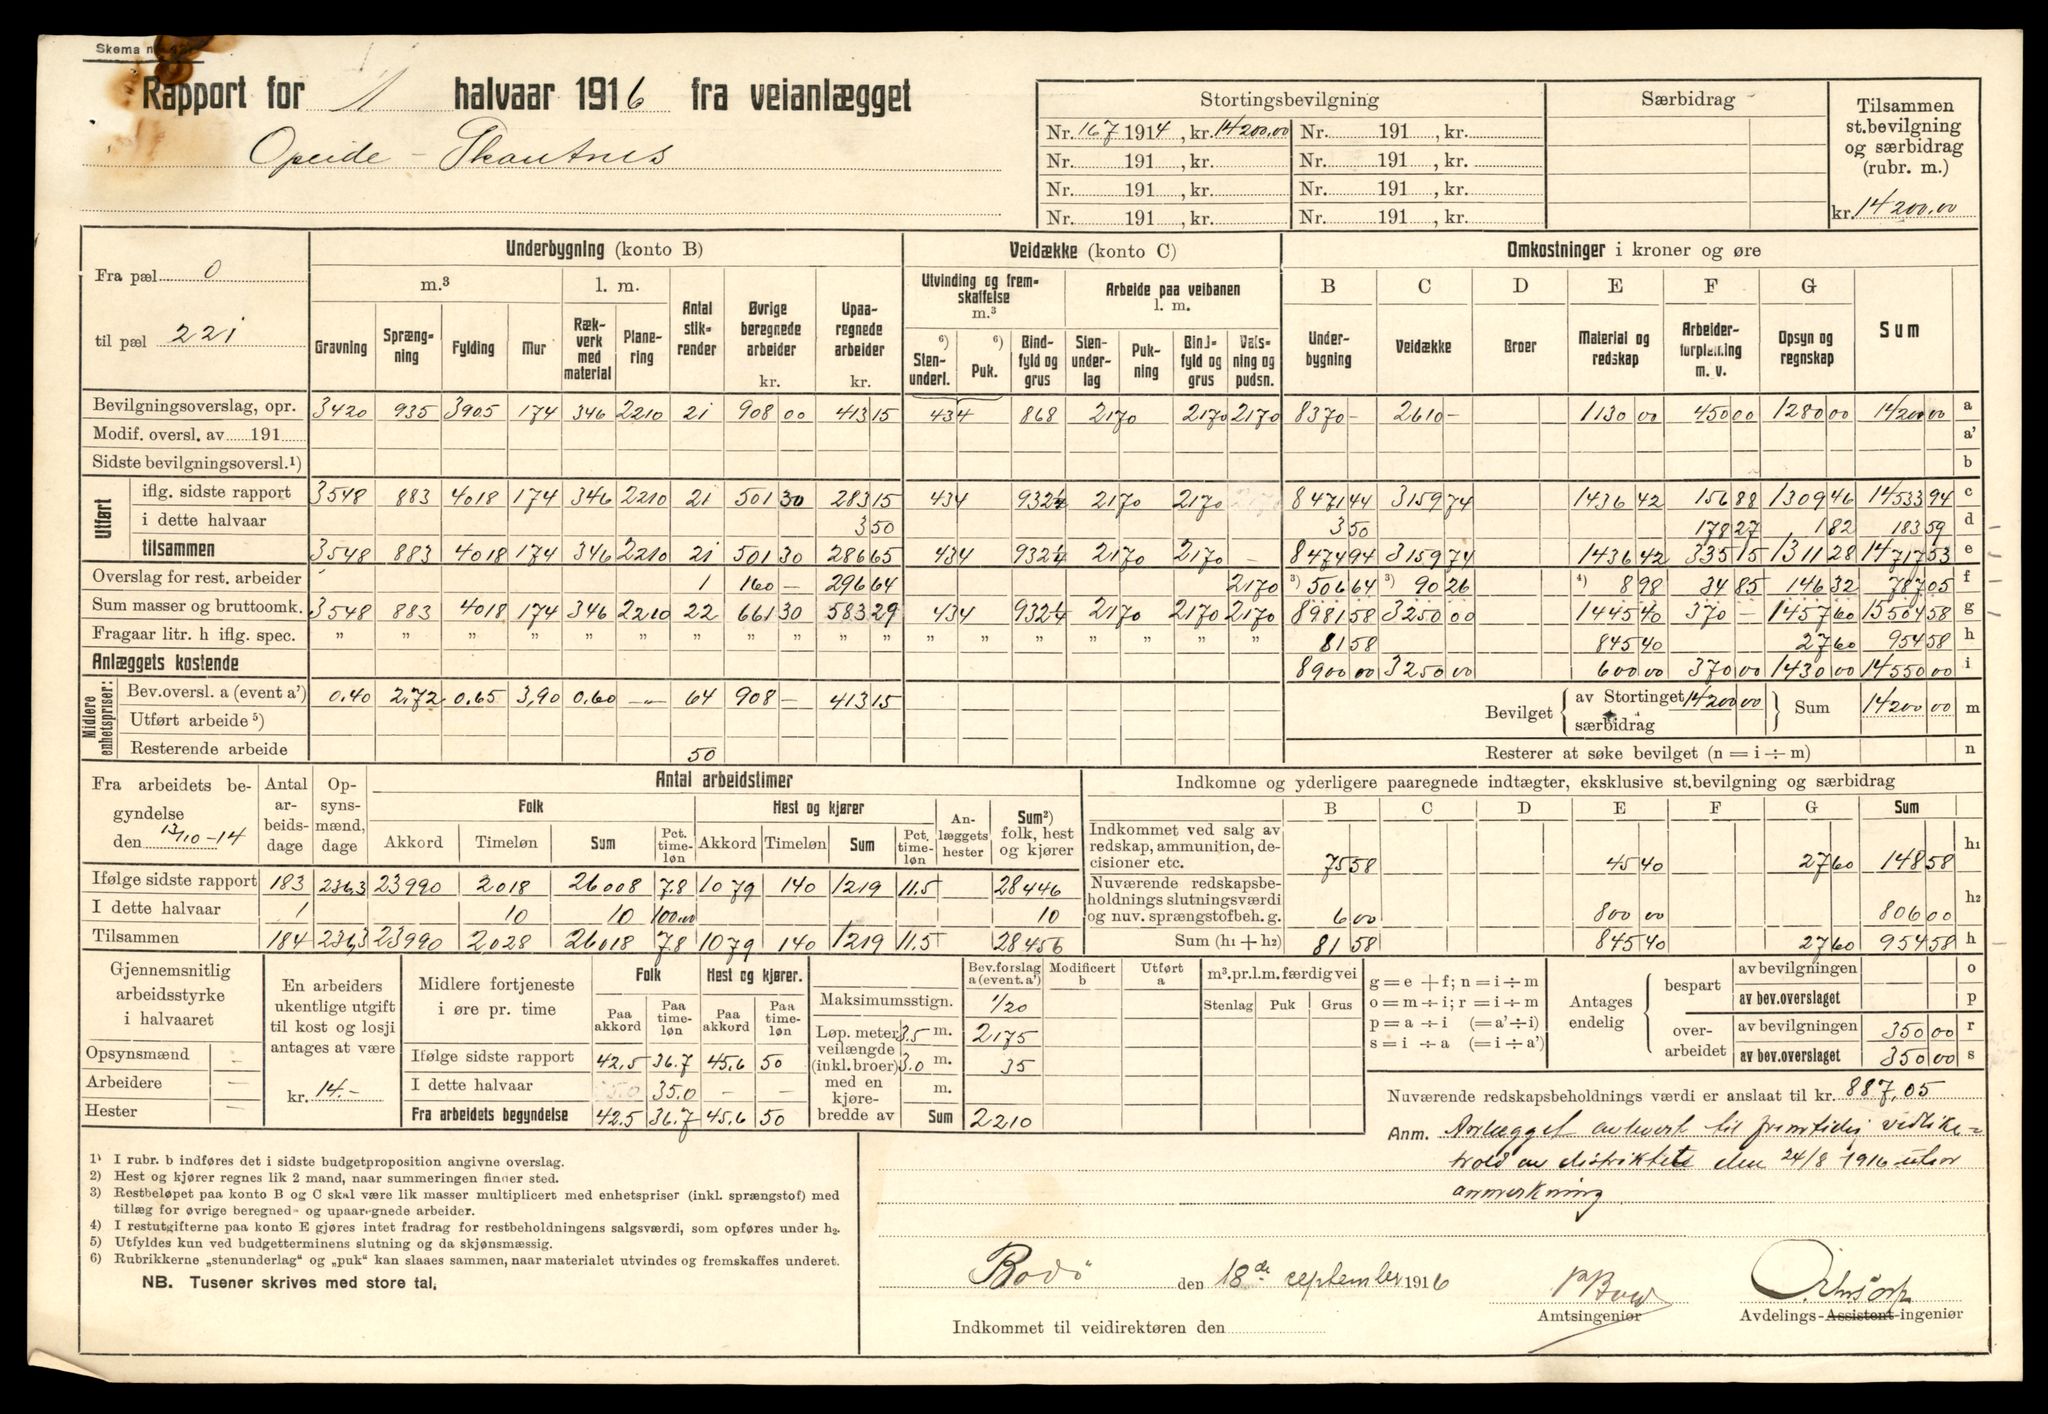 Skema nr.
Rapport for 1 halvaar 1916 fra veianlægget
Opeide - Skautnes
Stortingsbevilgning Særbidrag Tilsammen st.bevilgning og særbidrag (rubr. m.)
Nr. 167 1914, kr. 14200.00 Nr. 191 , kr.
Nr. 191 , kr. Nr. 191 , kr.
Nr. 191 , kr. Nr. 191 , kr.
Nr. 191 , kr. Nr. 191 , kr. kr. 14200.00
Fra pæl 0
til pæl 221
Underbygning (konto B) Veidække (konto C) Omkostninger i kroner og øre
m.³ l. m. Antal stikrender Øvrige beregnede arbeider kr. Upaaregnede arbeider kr.
Gravning Sprængning Fylding Mur Rækverk med material Planering
Utvinding og fremskaffelse m.³ Arbeide paa veibanen l. m.
6) Stenunderl. 6) Puk. Bindfyld og grus Stenunderlag Pukning Bindfyld og grus Valsning og pudsn.
B C D E F G
Underbygning Veidække Broer Material og redskap Arbeiderforplejning m. v. Opsyn og regnskap Sum
Bevilgningsoverslag, opr. 3420 935 3905 174 346 2210 21 908 00 413 15 434 868 2170 2170 2170 8370 - 2610 - 1130 00 450 00 1280 00 14200 00 a
Modif. oversl. av 191 a'
Sidste bevilgningsoversl.¹) b
Utført
iflg. sidste rapport 3548 883 4018 174 346 2210 21 501 30 283 15 434 932 4 2170 2170 8471 44 3159 74 1436 42 156 88 1309 46 14533 94 c
i dette halvaar 3 50 3 50 178 27 1 82 183 59 d
tilsammen 3548 883 4018 174 346 2210 21 501 30 286 65 434 932 4 2170 2170 - 8474 94 3159 74 1436 42 335 15 1311 28 14717 53 e
Overslag for rest. arbeider 1 160 - 296 64 2170 ³) 506 64 ³) 90 26 ⁴) 8 98 34 85 146 32 787 05 f
Sum masser og bruttoomk. 3548 883 4018 174 346 2210 22 661 30 583 29 434 932 4 2170 2170 2170 8981 58 3250 00 1445 40 370 - 1457 60 15504 58 g
Fragaar litr. h iflg. spec. " " " " " " " " " " " " " " " " " " 81 58 845 40 27 60 954 58 h
Anlæggets kostende 8900 00 3250 00 600 00 370 00 1430 00 14550 00 i
Midlere enhetspriser:
Bev.oversl. a (event a') 0.40 2.72 0.65 3,90 0.60 -"- 64 908 - 413 15
Utført arbeide ⁵)
Resterende arbeide 50
Bevilget av Stortinget 14200 00 særbidrag Sum 14200 00 m
Resterer at søke bevilget (n = i ÷ m) n
Fra arbeidets begyndelse den 13/10-14
Antal arbeidsdage Opsynsmænd, dage Antal arbeidstimer
Folk Hest og kjører Anlæggets hester Sum²) folk, hest og kjører
Akkord Timeløn Sum Pct. timeløn Akkord Timeløn Sum Pct. timeløn
Ifølge sidste rapport 183 236,3 23990 2018 26008 7.8 1079 140 1219 11.5 28446
I dette halvaar 1 10 10 100.00 10
Tilsammen 184 236,3 23990 2028 26018 7.8 1079 140 1219 11.5 28456
Indkomne og yderligere paaregnede indtægter, eksklusive st.bevilgning og særbidrag
B C D E F G Sum
Indkommet ved salg av redskap, ammunition, decisioner etc. 75 58 45 40 27 60 148 58 h₁
Nuværende redskapsbeholdnings slutningsværdi og nuv. sprængstofbeh. g. 6 00 800 00 806 00 h₂
Sum (h₁ + h₂) 81 58 845 40 27 60 954 58 h
Gjennemsnitlig arbeidsstyrke i halvaaret
Opsynsmænd -
Arbeidere -
Hester -
En arbeiders ukentlige utgift til kost og losji antages at være
kr. 14.-
Midlere fortjeneste i øre pr. time
Folk Hest og kjører.
Paa akkord Paa timeløn Paa akkord Paa timeløn
Ifølge sidste rapport 42,5 36.7 45.6 50
I dette halvaar 35.0 - -
Fra arbeidets begyndelse 42.5 36.7 45.6 50
Bev.forslag a (event. a') Modificert b Utført a
Maksimumsstign. 1/20
Løp. meter veilængde (inkl. broer) med en kjørebredde av
3.5 m. 2175
3.0 m. 35
m.
Sum 2210
m³. pr. l. m. færdig vei
Stenlag Puk Grus
g = e + f; n = i ÷ m
o = m ÷ i; r = i ÷ m
p = a ÷ i (= a' ÷ i)
s = i ÷ a (= i ÷ a')
Antages endelig
bespart av bevilgningen o
av bev.overslaget p
overarbeidet av bevilgningen 350 00 r
av bev.overslaget 350 00 s
Nuværende redskapsbeholdnings værdi er anslaat til kr. 887,05
Anm. Anlægget antvert til fremtidig vedlike-
hold av distriktet den 24/8 1916 uten
anmerkning
1) I rubr. b indføres det i sidste budgetproposition angivne overslag.
2) Hest og kjører regnes lik 2 mand, naar summeringen finder sted.
3) Restbeløpet paa konto B og C skal være lik masser multiplicert med enhetspriser (inkl. sprængstof) med
tillæg for øvrige beregned- og upaaregnede arbeider.
4) I restutgifterne paa konto E gjøres intet fradrag for restbeholdningens salgsværdi, som opføres under h₂.
5) Utfyldes kun ved budgetterminens slutning og da skjønsmæssig.
6) Rubrikkerne „stenunderlag" og „puk" kan slaaes sammen, naar materialet utvindes og fremskaffes underet.
NB. Tusener skrives med store tal.
Bodø den 18de september 1916
Amtsingeniør Avdelings-Assistent-ingeniør
Indkommet til veidirektøren den